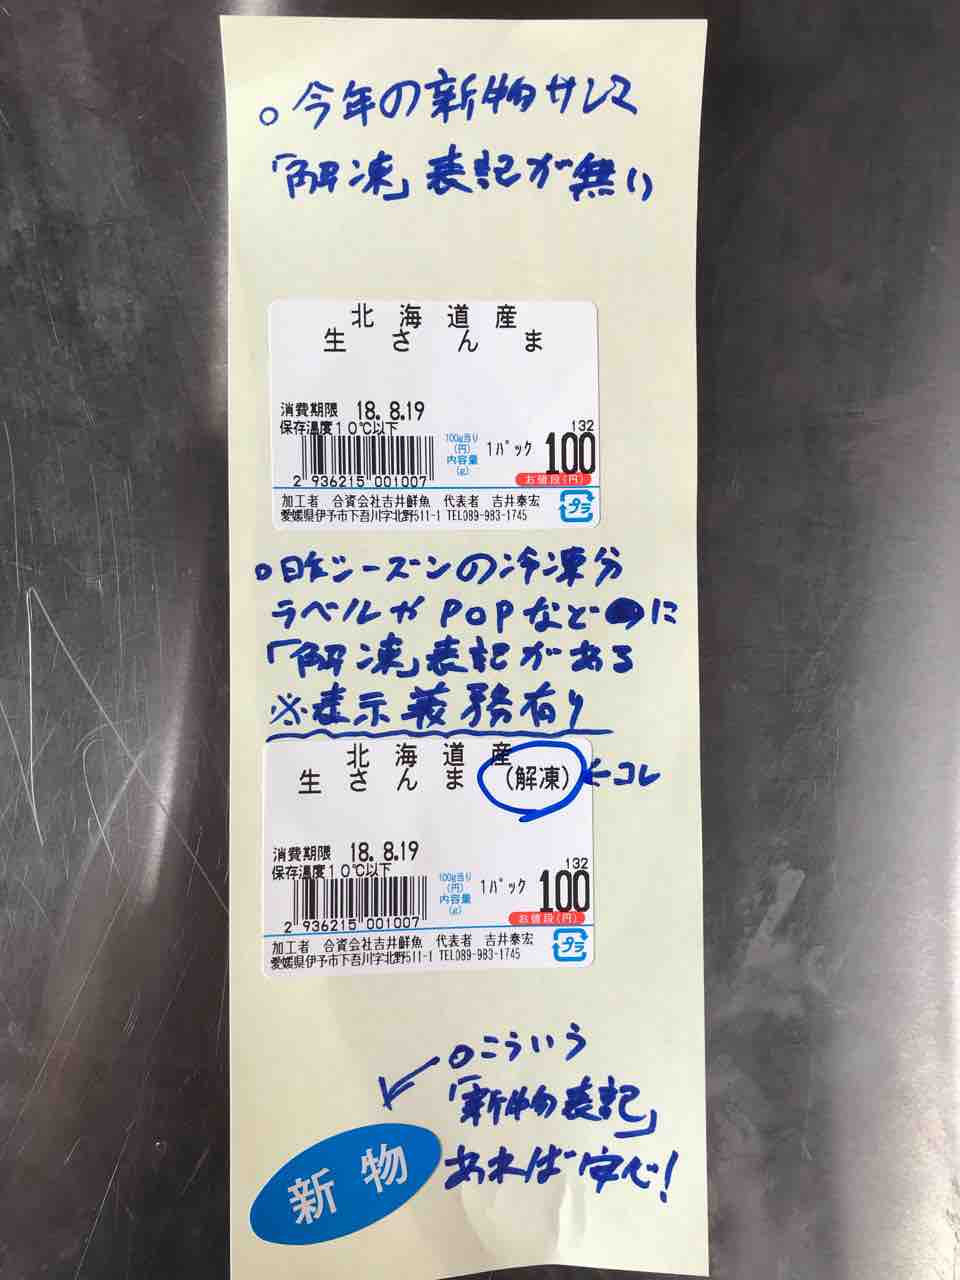 ○今年の新物サンマ
「解凍」表記が無い
北海道産
生さんま
消費期限 18.8.19
保存温度10℃以下
132
100g当り(円)
内容量(g)
1パック 100
お値段(円)
2 936215 001007
加工者 合資会社吉井鮮魚 代表者 吉井泰宏
愛媛県伊予市下吾川字北野511-1 TEL089-983-1745
プラ
○昨シーズンの冷凍分
ラベルやPOPなどに
「解凍」表記がある
※表示義務有り
北海道産
生さんま (解凍) ←コレ
消費期限 18.8.19
保存温度10℃以下
132
100g当り(円)
内容量(g)
1パック 100
お値段(円)
2 936215 001007
加工者 合資会社吉井鮮魚 代表者 吉井泰宏
愛媛県伊予市下吾川字北野511-1 TEL089-983-1745
プラ
○こういう
「新物表記」
あれば安心!
新物